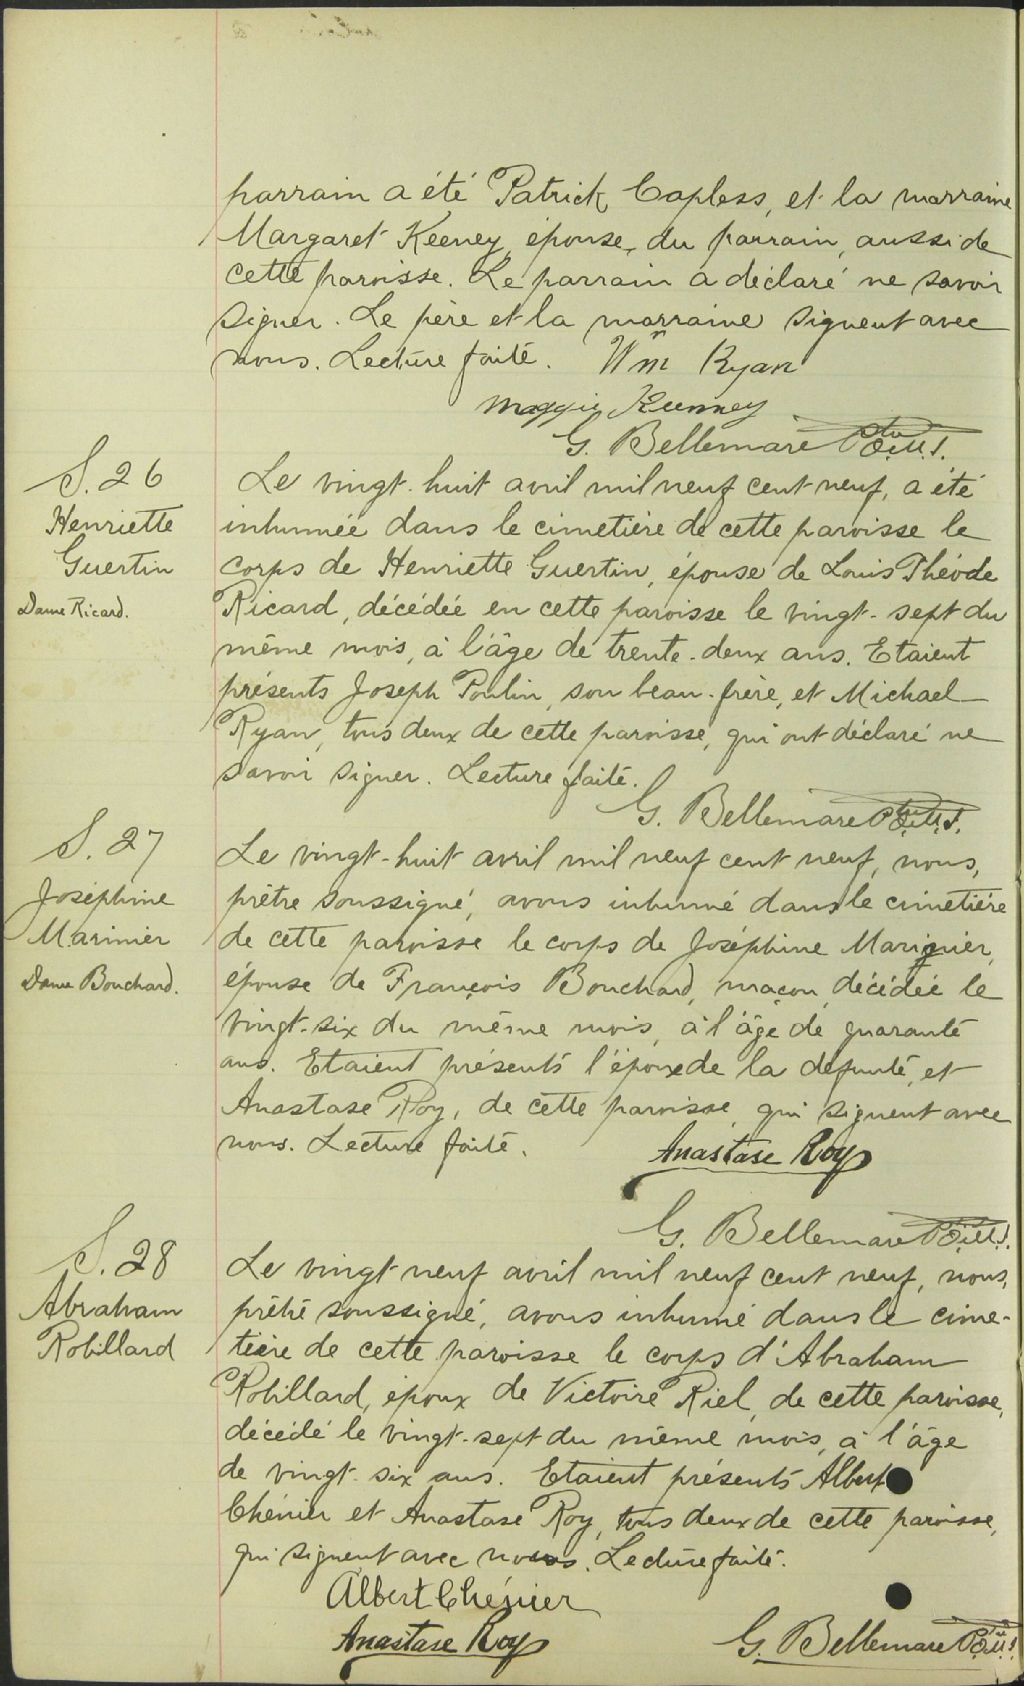 parrain a été Patrick Capless, et la marraine
Margaret Keeney, épouse, du parrain, aussi de
cette paroisse. Le parrain a déclaré ne savoir
signer. Le père et la marraine signent avec
nous. Lecture faite. Wm Ryan
Maggie Keenney
G. Bellemare Ptre O.M.I.
S. 26
Henriette
Guertin
Dame Ricard.
Le vingt-huit avril mil neuf cent neuf, a été
inhumée dans le cimetière de cette paroisse le
corps de Henriette Guertin, épouse de Louis Théode
Ricard, décédée en cette paroisse le vingt-sept du
même mois, à l'âge de trente-deux ans. Etaient
présents Joseph Poulin, son beau-frère, et Michael
Ryan, tous deux de cette paroisse, qui ont déclaré ne
savoir signer. Lecture faite.
G. Bellemare Ptre O.M.I.
S. 27
Joséphine
Marinier
Dame Bouchard.
Le vingt-huit avril mil neuf cent neuf, nous,
prêtre soussigné, avons inhumé dans le cimetière
de cette paroisse le corps de Joséphine Marinier,
épouse de François Bouchard, maçon, décédée le
vingt-six du même mois, à l'âge de quarante
ans. Etaient présents l'époux de la défunte, et
Anastase Roy, de cette paroisse, qui signent avec
nous. Lecture faite.
Anastase Roy
G. Bellemare Ptre O.M.I.
S. 28
Abraham
Robillard
Le vingt neuf avril mil neuf cent neuf, nous,
prêtre soussigné, avons inhumé dans le cime-
tière de cette paroisse le corps d'Abraham
Robillard, époux de Victoire Riel, de cette paroisse,
décédé le vingt-sept du même mois, à l'âge
de vingt-six ans. Etaient présents Albert
Chénier et Anastase Roy, tous deux de cette paroisse,
qui signent avec nous. Lecture faite.
Albert Chénier
Anastase Roy
G. Bellemare Ptre O.M.I.